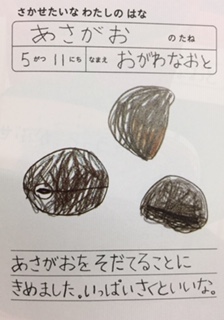 さかせたいな わたしの はな
あさがお のたね
5がつ 11にち なまえ おがわなおと
あさがおをそだてることに
きめました。いっぱいさくといいな。